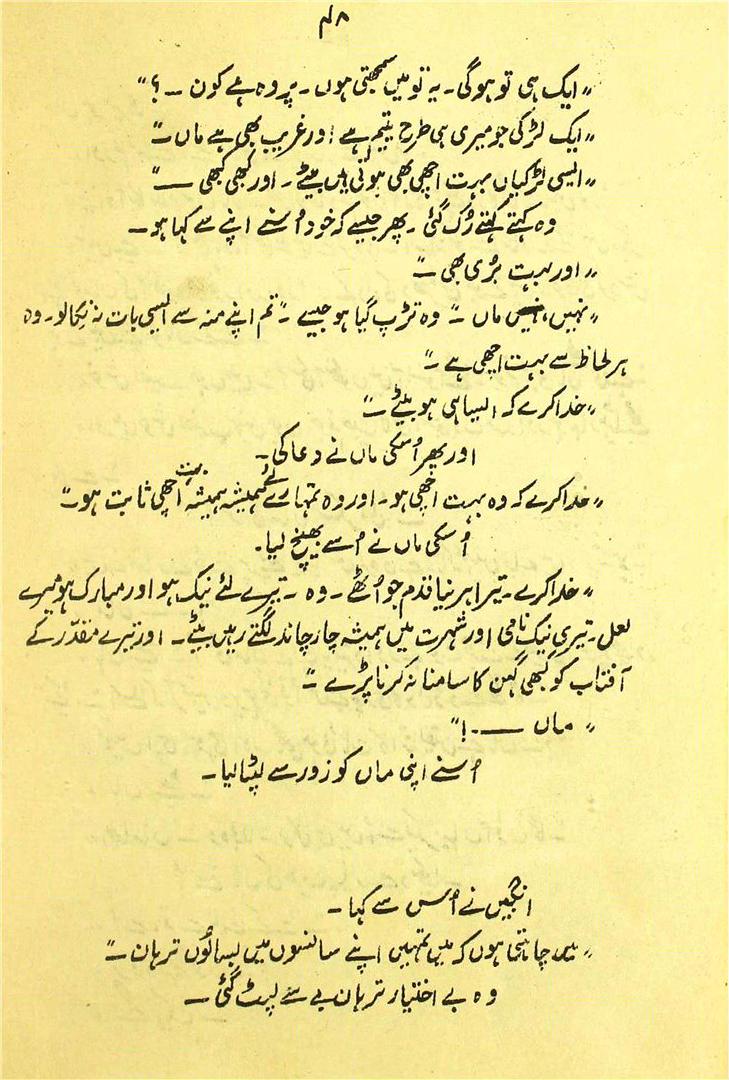 ۴۸
"ایک ہی تو ہوگی۔ یہ تو میں سمجھتی ہوں۔ پر وہ ہے کون ۔ ؟"
"ایک لڑکی جو میری ہی طرح یتیم ہے اور غریب بھی ہے ماں۔"
"ایسی لڑکیاں بہت اچھی بھی ہوتی ہیں بیٹے۔ اور کبھی کبھی ——"
وہ کہتے کہتے رُک گئی۔ پھر جیسے کہ خود اُسنے اپنے سے کہا ہو۔
"اور بہت بُری بھی ۔"
"نہیں، نہیں ماں ۔" وہ تڑپ گیا ہو جیسے ۔ "تم اپنے منہ سے ایسی بات نہ نکالو۔ وہ
ہر لحاظ سے بہت اچھی ہے ۔"
"خدا کرے کہ ایسا ہی ہو بیٹے ۔"
اور پھر اُسکی ماں نے دعا کی۔
"خدا کرے کہ وہ بہت اچھی ہو۔ اور وہ تمہارے لئے ہمیشہ ہمیشہ بہت اچھی ثابت ہو۔"
اُسکی ماں نے اُسے بھینچ لیا۔
"خدا کرے۔ تیرا ہر نیا قدم جو اُٹھے ۔ وہ ۔ تیرے لئے نیک ہو اور مبارک ہو میرے
لعل۔ تیری نیک نامی اور شہرت میں ہمیشہ چار چاند لگتے رہیں بیٹے۔ اور تیرے مقدّر کے
آفتاب کو کبھی گہن کا سامنا نہ کرنا پڑے ۔"
"ماں ——۔!"
اُسنے اپنی ماں کو زور سے لپٹا لیا۔
انگبیں نے اُس سے کہا۔
"میں چاہتی ہوں کہ میں تمہیں اپنے سانسوں میں بسالُوں ترہان ۔"
وہ بے اختیار ترہان سے لپٹ گئی ۔